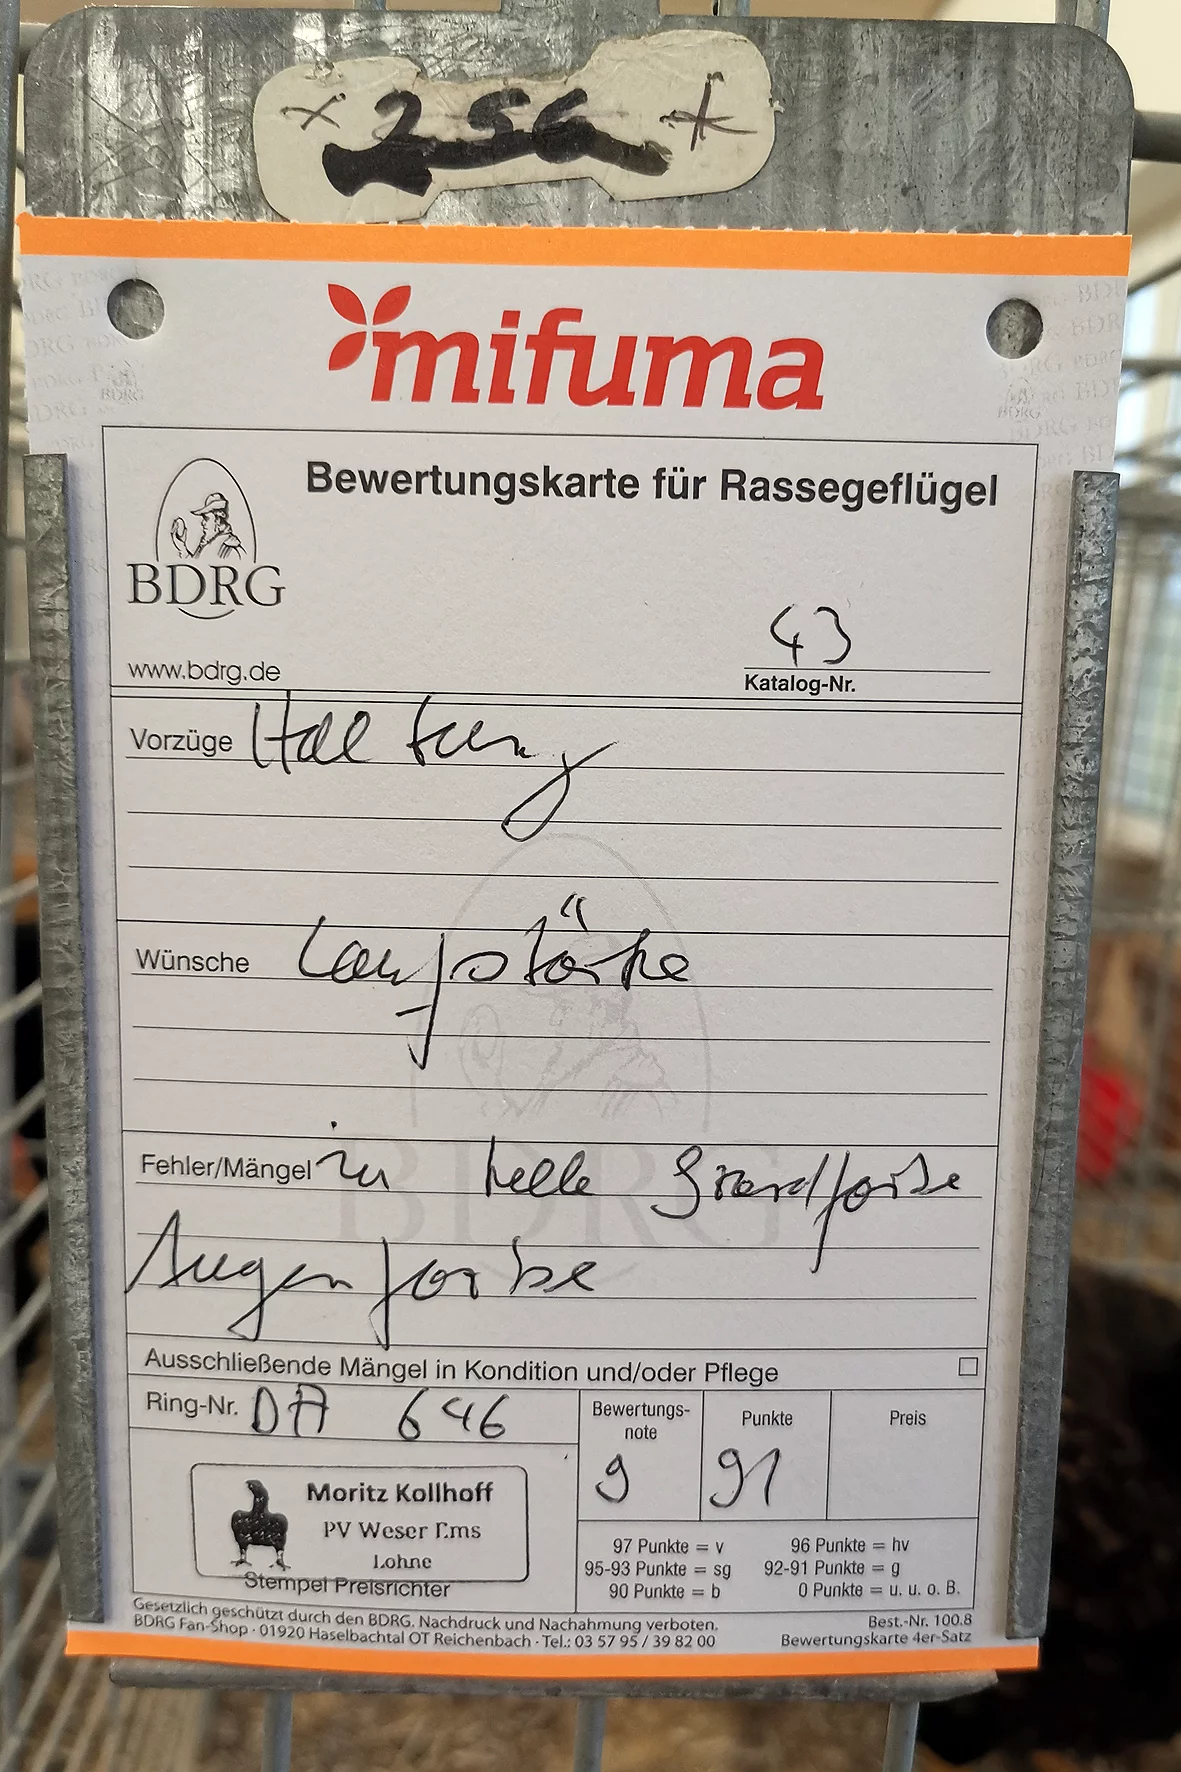 x 256 x
mifuma
Bewertungskarte für Rassegeflügel
BDRG
www.bdrg.de
43
Katalog-Nr.
Vorzüge Haltung
Wünsche Laufstärke
Fehler/Mängel zu helle Grundfarbe
Augenfarbe
Ausschließende Mängel in Kondition und/oder Pflege
Ring-Nr. DA 646
Bewertungs-
note
g
Punkte
91
Preis
Moritz Kollhoff
PV Weser Ems
Lohne
Stempel Preisrichter
97 Punkte = v 96 Punkte = hv
95-93 Punkte = sg 92-91 Punkte = g
90 Punkte = b 0 Punkte = u. u. o. B.
Gesetzlich geschützt durch den BDRG. Nachdruck und Nachahmung verboten.
BDRG Fan-Shop · 01920 Haselbachtal OT Reichenbach · Tel.: 03 57 95 / 39 82 00
Best.-Nr. 100.8
Bewertungskarte 4er-Satz